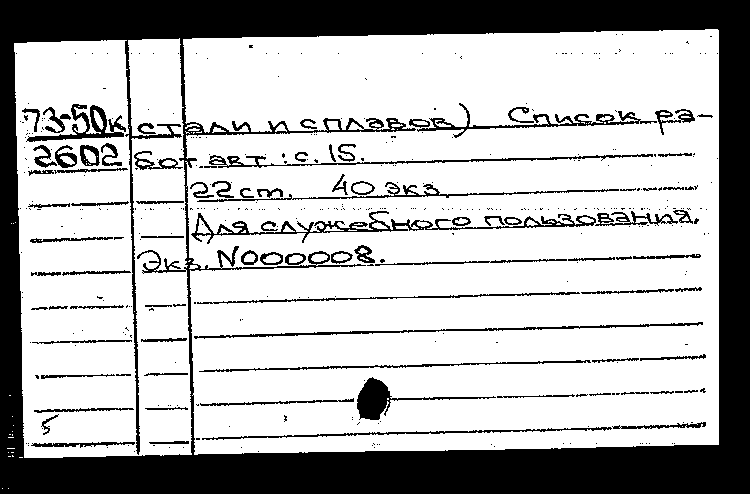 73-50к стали и сплавов) Список ра-
2602 бот авт.: с. 15.
22 cm. 40 экз.
Для служебного пользования.
Экз. N000008.
5